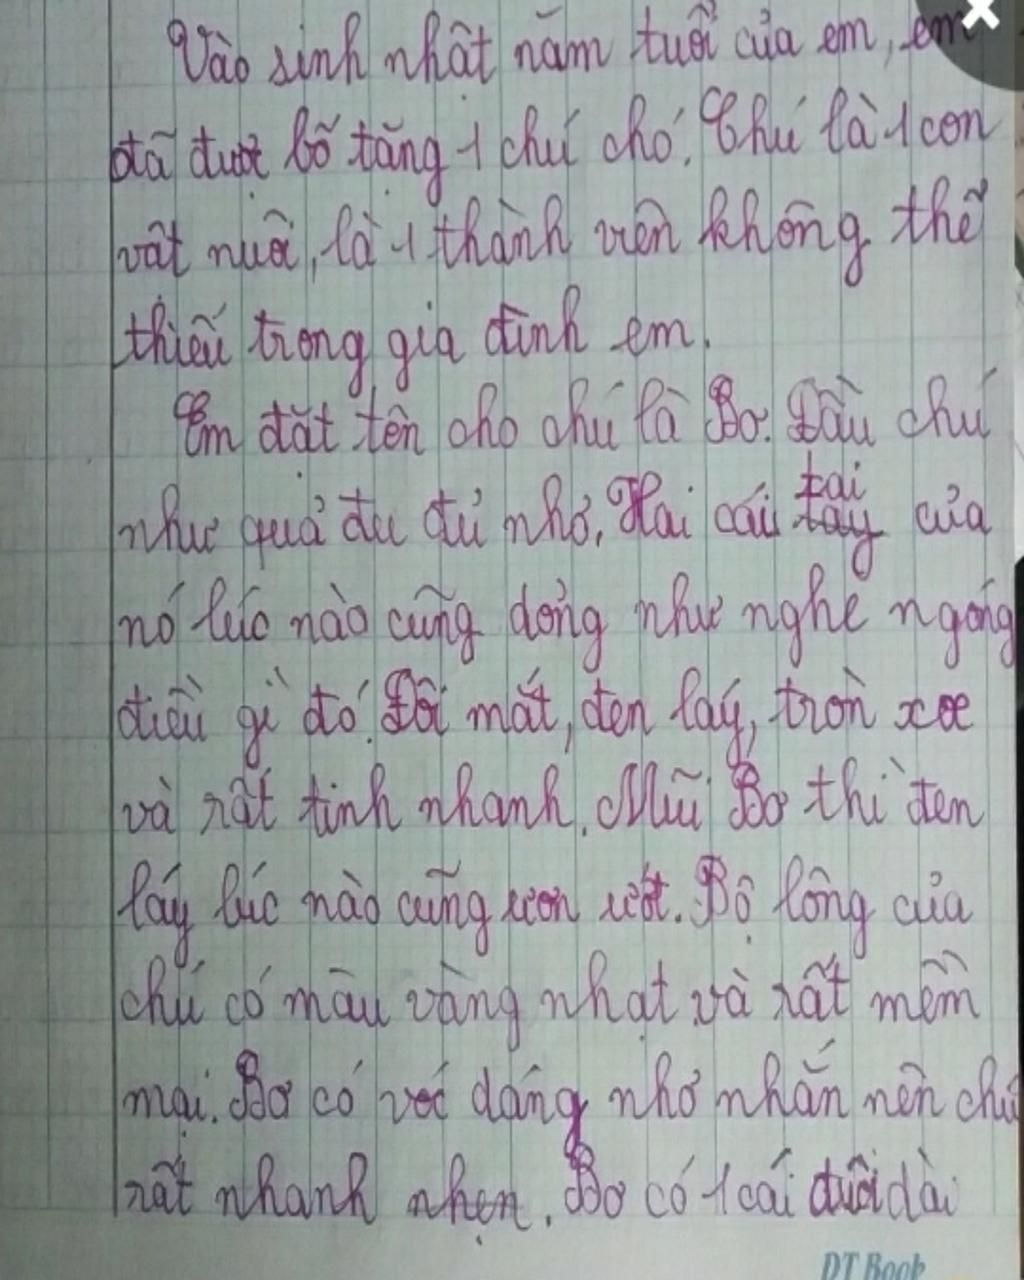 Vào sinh nhật năm tuổi của em, em
đã được bố tặng 1 chú chó. Chú là 1 con
vật nuôi, là 1 thành viên không thể
thiếu trong gia đình em.
Em đặt tên cho chú là Bơ. Đầu chú
như quả đu đủ nhỏ. Hai cái tai
tay của
nó lúc nào cũng dỏng như nghe ngóng
điều gì đó. Đôi mắt, đen láy, tròn xoe
và rất tinh nhanh. Mũi Bơ thì đen
láy lúc nào cũng ươn ướt. Bộ lông của
chú có màu vàng nhạt và rất mềm
mại. Bơ có vóc dáng nhỏ nhắn nên chú
rất nhanh nhẹn. Bơ có 1 cái đuôi dài
DT Book